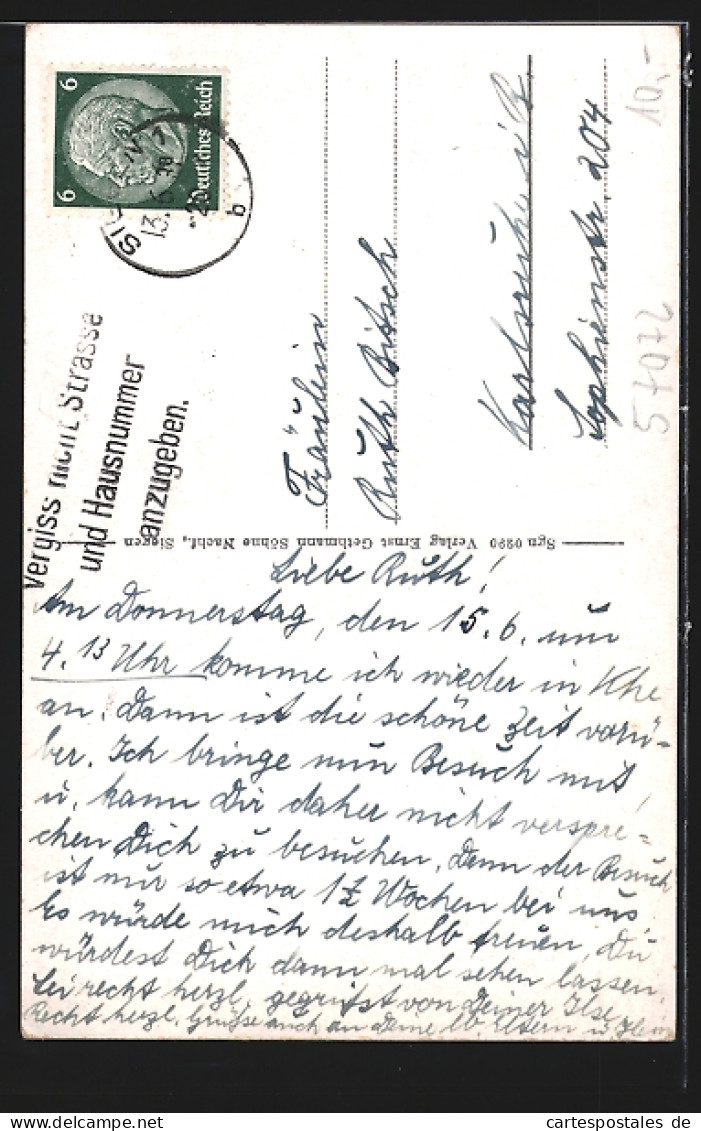 6 6
Deutsches Reich
13.6.
b
Vergiss nicht Strasse
und Hausnummer
anzugeben.
10,-
57072
Fräulein
Ruth Bitsch
Karlsruhe i/B.
Sophienstr. 204
Sgn 0290 Verlag Ernst Gethmann Söhne Nachf., Siegen
Liebe Ruth!
Am Donnerstag, den 15.6. um
4.13 Uhr komme ich wieder in Khe
an. Dann ist die schöne Zeit vorü-
ber. Ich bringe nun Besuch mit,
u. kann Dir daher nicht verspre-
chen Dich zu besuchen. Denn der Besuch
ist nur so etwa 1½ Wochen bei uns.
Es würde mich deshalb freuen, Du
würdest Dich dann mal sehen lassen.
Sei recht herzl. gegrüßt von Deiner Ilse
Recht herzl. Grüße auch an Deine lb. Eltern u.
www.delcampe.net
cartespostales de